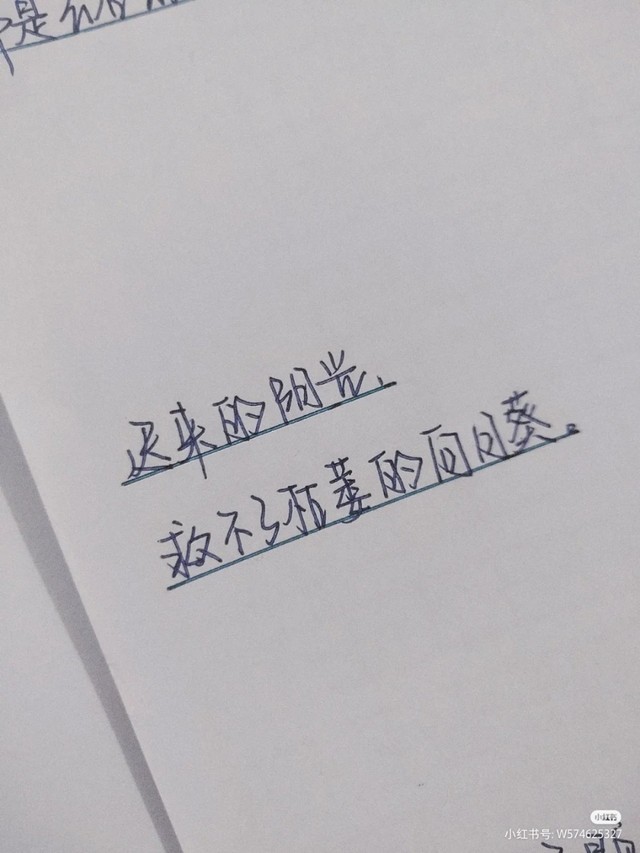 是
迟来的阳光,
救不了枯萎的向日葵。
小红书
小红书号: W574625327